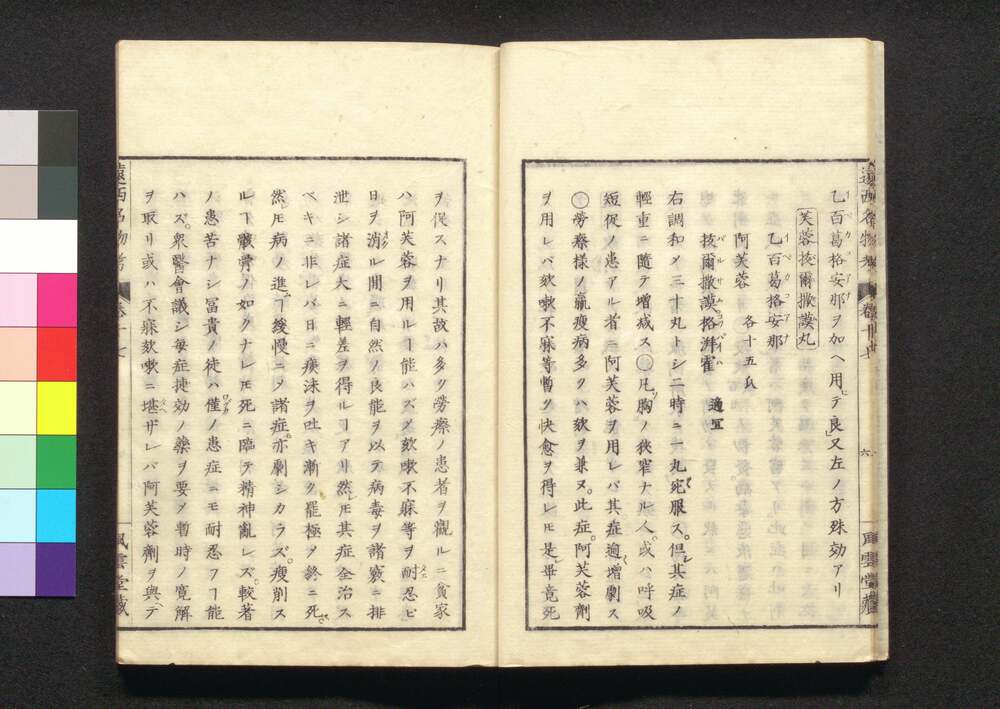 乙百葛格安那ヲ加ヘ用ヒテ良又左ノ方殊効アリ
芙蓉拔爾撒謨丸
乙百葛格安那
阿芙蓉 各十五𭙺
拔爾撒謨格湃霍 適宜
右調和メ三十丸トシ二時ニ一丸宛服ス。但シ其症ノ
輕重ニ隨テ増減ス〇凡ソ胸ノ狹窄ナル人或ハ呼吸
短促ノ患アル者ニ阿芙蓉ヲ用レバ其症適増劇ス
〇勞瘵様ノ羸瘦病多クハ欬ヲ兼ヌ。此症。阿芙蓉劑
ヲ用レバ欬嗽不寐等暫ク快愈ヲ得レモ是レ畢竟死
ヲ促スナリ其故ハ多ク勞瘵ノ患者ヲ觀ルニ貧家
ハ阿芙蓉ヲ用ルヿ能ハズメ欬嗽不寐等ヲ耐忍ビ
日ヲ消ル間ニ自然ノ良能ヲ以テ病毒ヲ諸竅ニ排
泄シ諸症大ニ輕差ヲ得ルヿアリ然レモ其症全治ス
ベキニ非レバ日ニ痰沫ヲ吐キ漸ク罷極メ終ニ死ス。
然レモ病ノ進ムヿ緩慢ニメ諸症亦劇シカラズ。瘦削ス
ルヿ骸骨ノ如クナレモ死ニ臨テ精神亂レズ。較著
ノ患苦ナシ冨貴ノ徒ハ僅ノ患症ニモ耐忍フヿ能
ハズ。衆醫會議シ毎症捷効ノ藥ヲ要メ暫時ノ寛解
ヲ取リ或ハ不寐欬嗽ニ堪ザレバ阿芙蓉劑ヲ與ヘテ
遠西名物考 卷十七
風雲堂藏
六